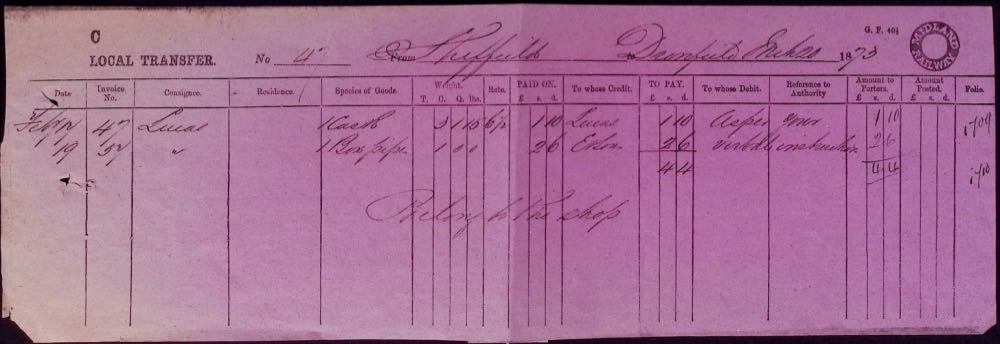 C
G. F. 40½
MIDLAND RAILWAY
LOCAL TRANSFER. No 47 From Sheffield to Dronfield 1873
Date Invoice No. Consignee. Residence. Species of Goods. Weight. T. C. Q. lbs. Rate. PAID ON. £ s. d. To whose Credit. TO PAY. £ s. d. To whose Debit. Reference to Authority Amount to Porters. £ s. d. Amount Posted. £ s. d. Folio.
47 Lucas 1 Cask 3 1 15 1 10 Lucas 1 10 As per your 1 10 1709
19 57 " 1 Box pipe 1 0 0 2 6 2 6 verbal instruction 2 6
4 4 4 4 1710
Belong to the shop